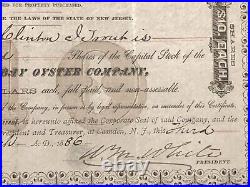 ED FOR PROPERTY PURCHASED.
THE LAWS OF THE STATE OF NEW JERSEY.
Clinton J. is
Shares of the Capital Stock of the
BAY OYSTER COMPANY,
LLARS each, full paid, and non-assessable.
of the Company, in person, or by legal representative, on surrender of
are affixed the Corporate Seal of said Company,
President and Treasurer, at Camden, N. J., this Third
A. D., 1886
Wm White
PRESIDENT
SHARES
$10 EACH.